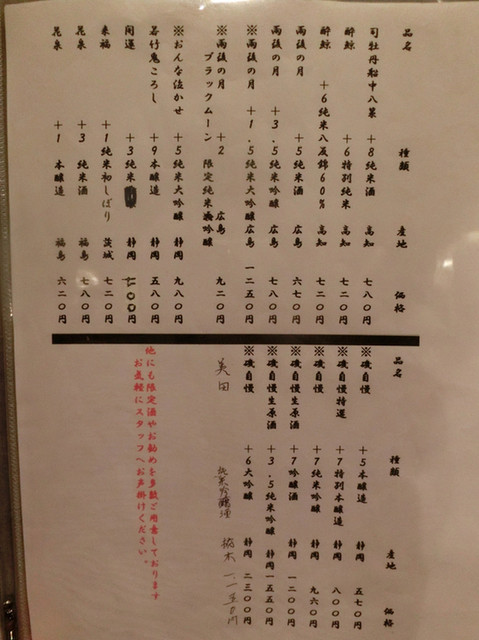 品名 種類 産地 価格
司牡丹船中八策 +8純米酒 高知 七八〇円
酔鯨 +6特別純米 高知 七二〇円
酔鯨 +6純米八反錦60% 高知 七二〇円
雨後の月 +5純米酒 広島 六七〇円
雨後の月 +3.5純米吟醸 広島 七八〇円
※雨後の月 +1.5純米大吟醸 広島 一二五〇円
※雨後の月 +2 広島 九二〇円
ブラックムーン 限定純米吟醸
※おんな泣かせ +5純米大吟醸 静岡 九八〇円
若竹鬼ころし +9本醸造 静岡 五八〇円
開運 +3純米 静岡
来福 +1純米初しぼり 茨城 七二〇円
花泉 +3 純米酒 福島 七八〇円
花泉 +1 本醸造 福島 六二〇円
品名 種類 産地 価格
※磯自慢 +5本醸造 静岡 五七〇円
※磯自慢特選 +7特別本醸造 静岡 八〇〇円
※磯自慢 +7純米吟醸 静岡 九六〇円
※磯自慢生原酒 +7吟醸酒 静岡 一二〇〇円
※磯自慢生原酒 +3.5純米吟醸 静岡 一五五〇円
※磯自慢 +6大吟醸 静岡 二三〇〇円
美田 純米吟醸 栃木
他にも限定酒やお勧めを多数ご用意しております
お気軽にスタッフへお声掛けください。